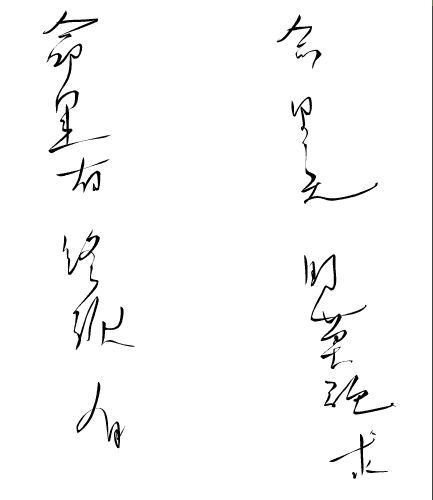 命里有终须有
命里无时莫强求